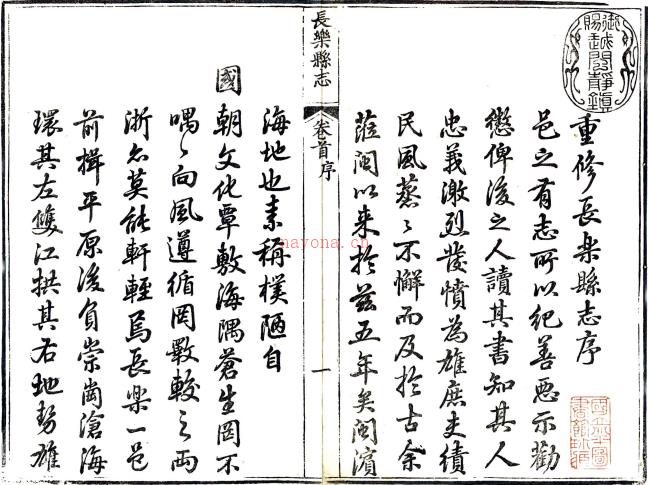 御賜越閩靜鎮
重修長楽縣志序
邑之有志所以紀善惡示勸
懲俾後之人讀其書知其人
忠義激烈發憤為雄庶吏績
民風蒸〻不懈而及於古余
蒞閩以来於茲五年矣閩濱
長樂縣志
卷首序
一
海地也素稱樸陋自
國朝文化覃敷海隅蒼生罔不
喁〻向風遵循罔斁較之两
浙亦莫能軒輊焉長楽一邑
前揖平原後負崇崗滄海
環其左雙江拱其右地勢雄
nayona.cn